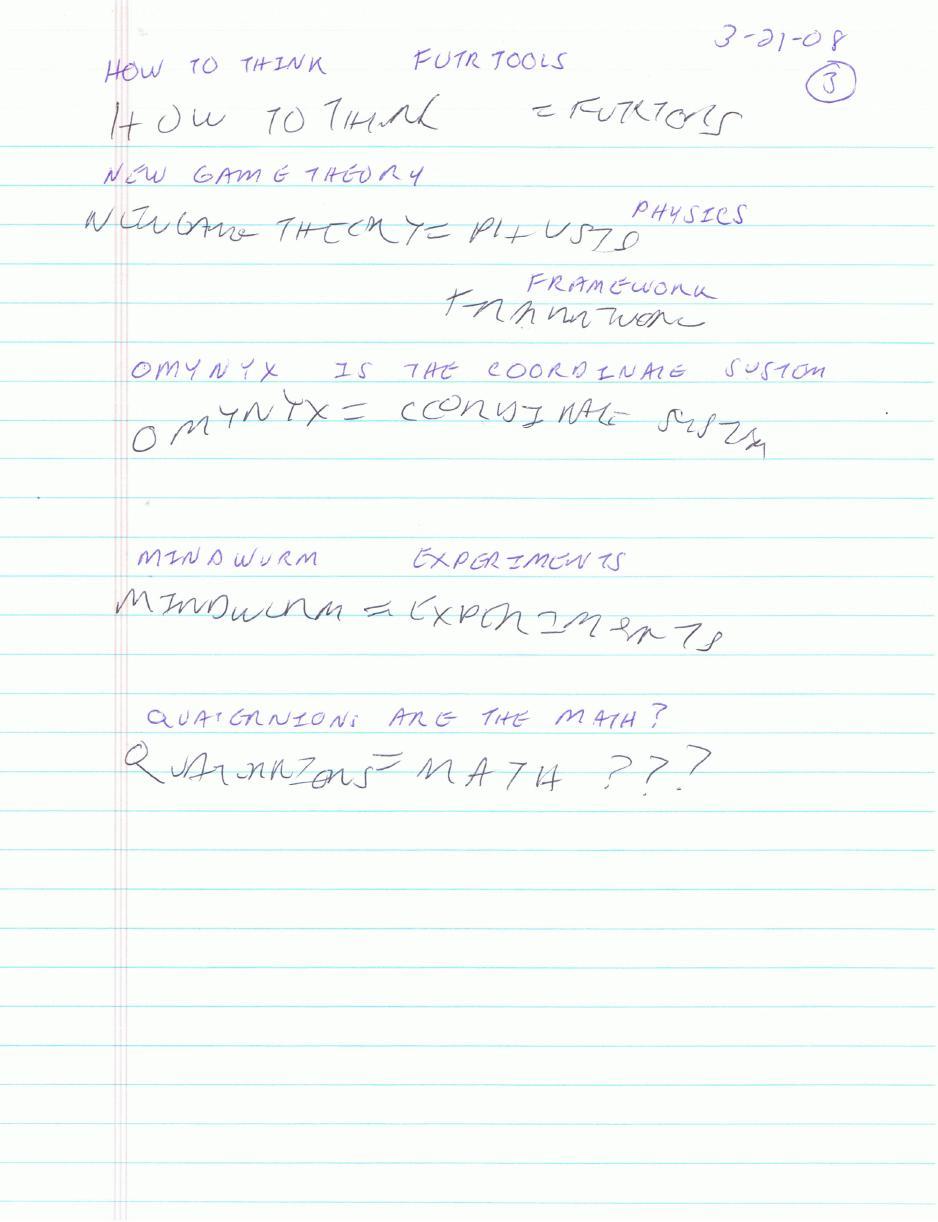 3-21-08
HOW TO THINK FUTR TOOLS
3
HOW TO THINK = FUTRTOOLS
NEW GAME THEORY
PHYSICS
NEW GAME THEORY =
FRAMEWORK
FRAMEWORK
OMYNYX IS THE COORDINATE SUSTOM
OMYNYX = COORDINATE SYSTEM
MINDWURM EXPERIMENTS
MINDWURM = EXPERIMENTS
QUATERNIONS ARE THE MATH?
QUATERNIONS = MATH ???